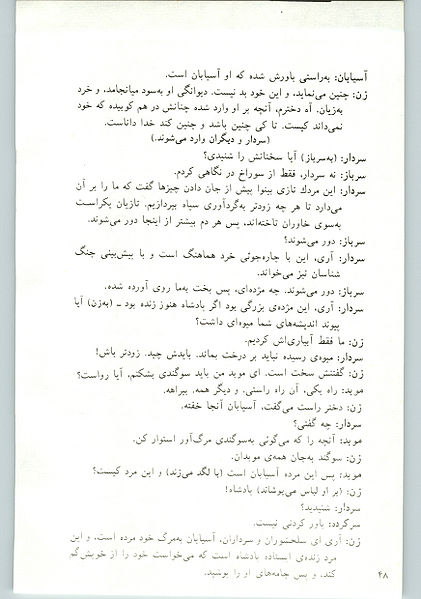 آسیابان: به‌راستی باورش شده که او آسیابان است.
زن: چنین می‌نماید، و این خود بد نیست. دیوانگی او به‌سود میانجامد، و خرد
به‌زیان. آه دخترم، آنچه بر او وارد شده چنانش در هم کوبیده که خود
نمی‌داند کیست. تا کی چنین باشد و چنین کند خدا داناست.
(سردار و دیگران وارد می‌شوند.)
سردار: (به‌سرباز) آیا سخنانش را شنیدی؟
سرباز: نه سردار، فقط از سوراخ در نگاهی کردم.
سردار: این مردك تازی بینوا بیش از جان دادن چیزها گفت که ما را بر آن
می‌دارد تا هر چه زودتر به‌گردآوری سپاه بپردازیم. تازیان یکراست
به‌سوی خاوران تاخته‌اند، پس هر دم بیشتر از اینجا دور می‌شوند.
سرباز: دور می‌شوند؟
سردار: آری، این با چاره‌جوئی خرد هماهنگ است و با پیش‌بینی جنگ
شناسان نیز می‌خواند.
سرباز: دور می‌شوند. چه مژده‌ای، پس بخت به‌ما روی آورده شده.
سردار: آری، این مژده‌ی بزرگی بود اگر پادشاه هنوز زنده بود ـ (به‌زن) آیا
پیوند اندیشه‌های شما میوه‌ای داشت؟
زن: ما فقط آبیاری‌اش کردیم.
سردار: میوه‌ی رسیده نباید بر درخت بماند. بایدش چید. زودتر باش!
زن: گفتنش سخت است. ای موبد من باید سوگندی بشکنم، آیا رواست؟
موبد: راه یکی، آن راه راستی، و دیگر همه، بیراهه.
زن: دختر راست می‌گفت، آسیابان آنجا خفته.
سردار: چه گفتی؟
موبد: آنچه را که می‌گوئی به‌سوگندی مرگ‌آور استوار کن.
زن: سوگند به‌جان همه‌ی موبدان.
موبد: پس این مرده آسیابان است (با لگد می‌زند) و این مرد کیست؟
زن: (بر او لباس می‌پوشاند) پادشاه!
سردار: شنیدید؟
سرکرده: باور کردنی نیست.
زن: آری ای سلحشوران و سرداران، آسیابان به‌مرگ خود مرده است، و این
مرد زنده‌ی ایستاده پادشاه است که می‌خواست خود را از خویش گم
کند. و پس جامه‌های او را پوسید.
۴۸